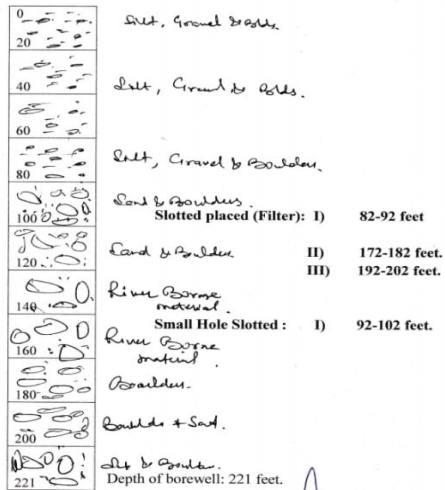 0
Silt, Gravel & Bolds.
20
40
Silt, Gravel & Bolds.
60
Silt, Gravel & Boulders.
80
Sand & Boulders.
100
Slotted placed (Filter): I) 82-92 feet
Sand & Boulder II) 172-182 feet.
120
III) 192-202 feet.
River Borne
material.
140
Small Hole Slotted : I) 92-102 feet.
River Borne
material.
160
Boulders.
180
Boulds + Sand.
200
Silt & Boulder.
221
Depth of borewell: 221 feet.